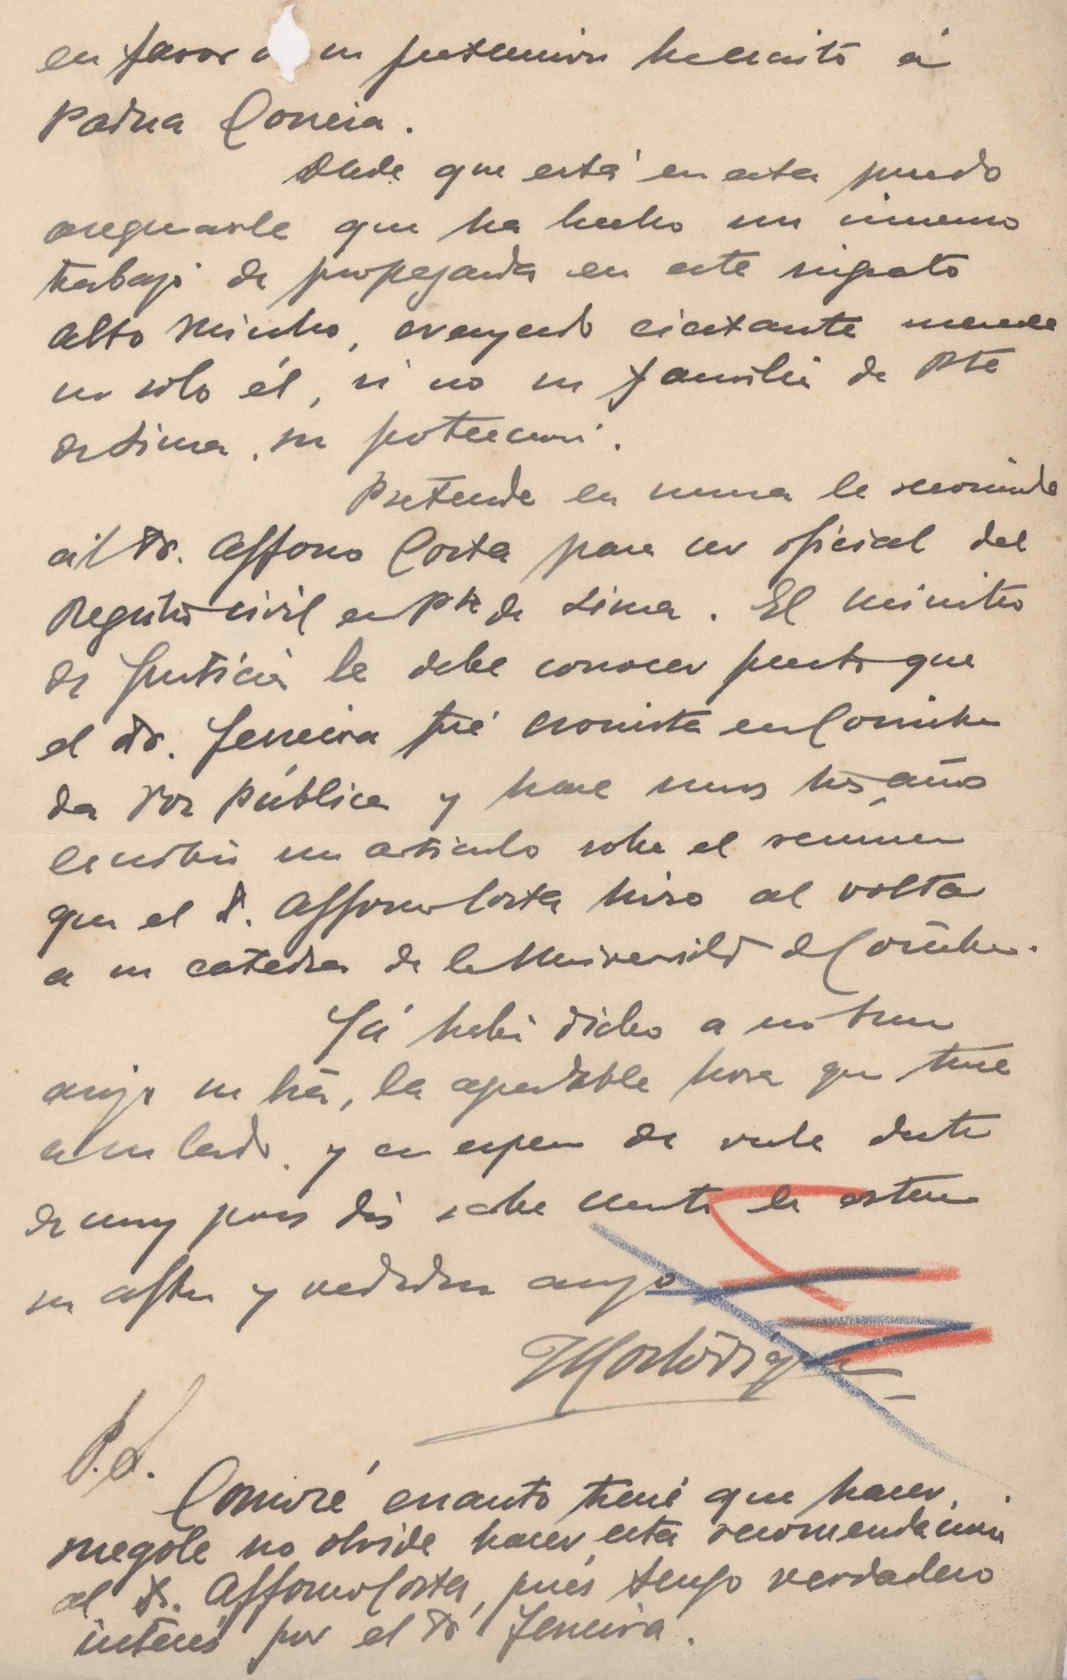 en favor de su pretension he escrito á
Padua Correia.
Desde que está en esta puedo
asegurarle que ha hecho un inmenso
trabajo de propaganda en este ingrato
Alto Minho, creyendo bastante merece
no solo él, si no su familia de Pte
de Lima, su proteccion.
Pretende en suma le recomiende
al Dr. Affonso Costa para ser oficial del
Registro civil en Pte de Lima. El ministro
de Justicia le debe conocer puesto que
el Dr. Ferreira fué cronista en Coimbra
da Voz Pública y hace unos tres años
escribió un articulo sobre el
que el Dr. Affonso Costa hizo al volta
a su catedra de la Universidad de Coimbra.
Yá habia dicho a nuestro buen
amigo la agradable hora que tuve
a su lado, y en espera de verle dentro
de muy pocos dias sabe cuanto le estima
su afftmo y verdadero amigo
P.D.
Comprendo cuanto tiene que hacer,
ruegole no olvide hacer esta recomendacion
al Dr. Affonso Costa, pués tengo verdadero
interés por el Dr Ferreira.